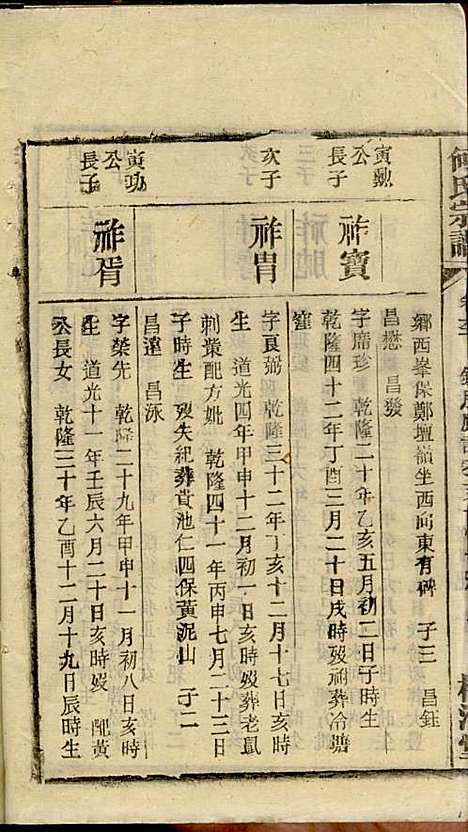 何氏宗譜
寅勲公長子
次子
寅功公長子
祚寶
祚胄
祚胥
鄉西峯保鄭壇嶺坐西向東有碑 子三 昌鈺
昌懋 昌發
字席珍 乾隆二十年乙亥五月初二日子時生
乾隆四十二年丁酉三月二十日戌時歿祔葬冷塘
窪
字良弼 乾隆三十二年丁亥十二月十七日亥時
生 道光四年甲申十二月初一日亥時歿葬老鼠
刺棠配方妣 乾隆四十一年丙申七月二十三日
子時生 歿失紀葬貴池仁四保黃泥山 子二
昌達 昌泳
字榮先 乾隆二十九年甲申十一月初八日亥時
生 道光十一年壬辰六月二十日亥時歿 配黃
公長女 乾隆三十年乙酉十二月十九日辰時生